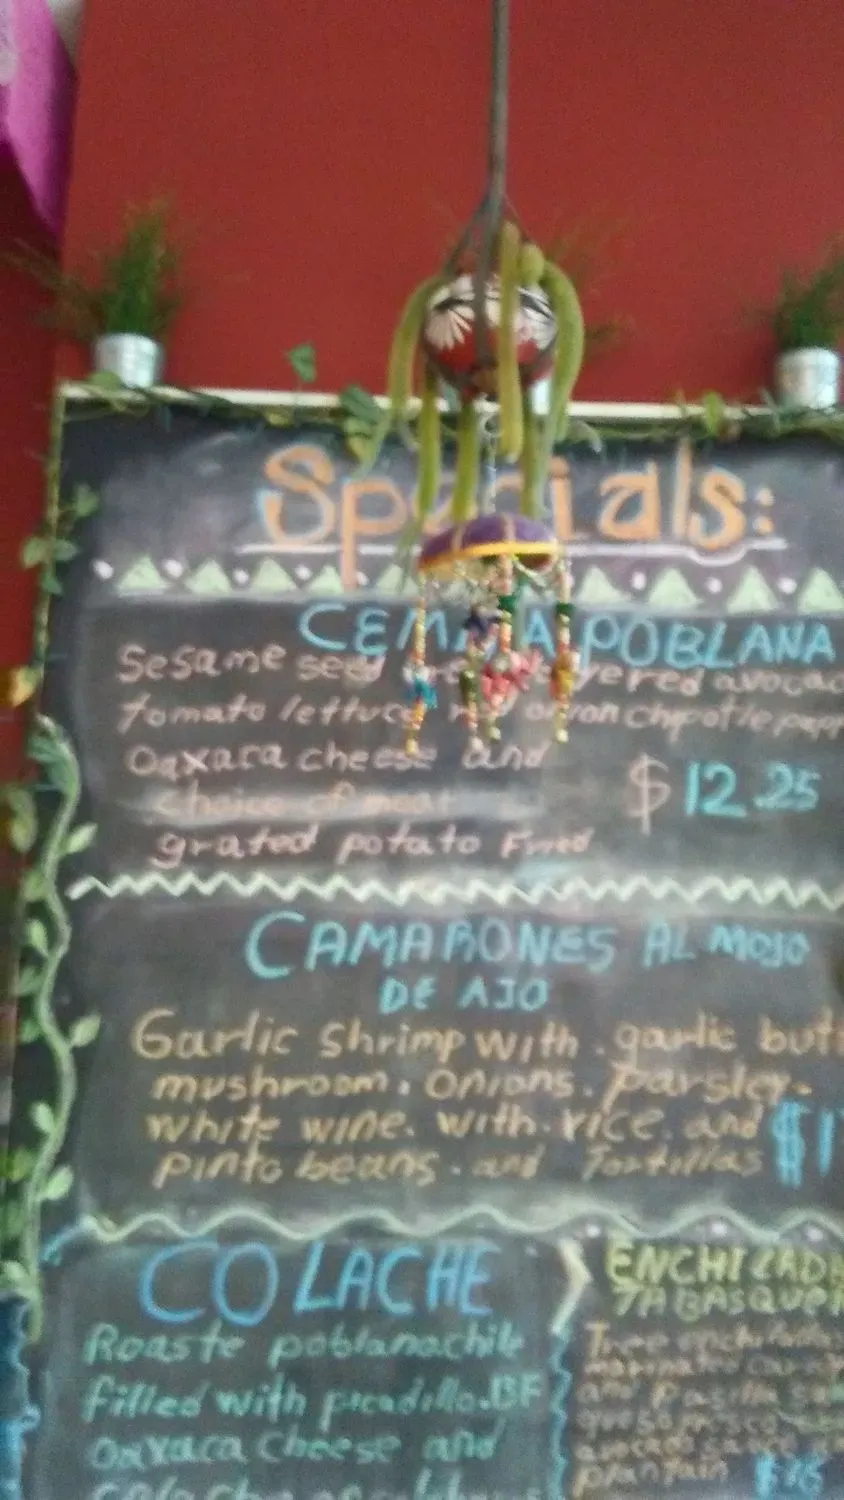 Specials:
CEMITA POBLANA
Sesame seed layered avocado
tomato lettuce red onion chipotle
Oaxaca cheese and
choice of meat
$12.25
grated potato Fried
CAMARONES AL MOJO
DE AJO
Garlic shrimp with garlic
mushroom. onions. parsley.
white wine. with. rice. and
$1
pinto beans. and Tortillas
COLACHE
Roaste poblanachile
filled with picadillo.BF
Oaxaca cheese and
ENCHILADA
TABASQUE
and Pasilla
avocado sauce
plantain